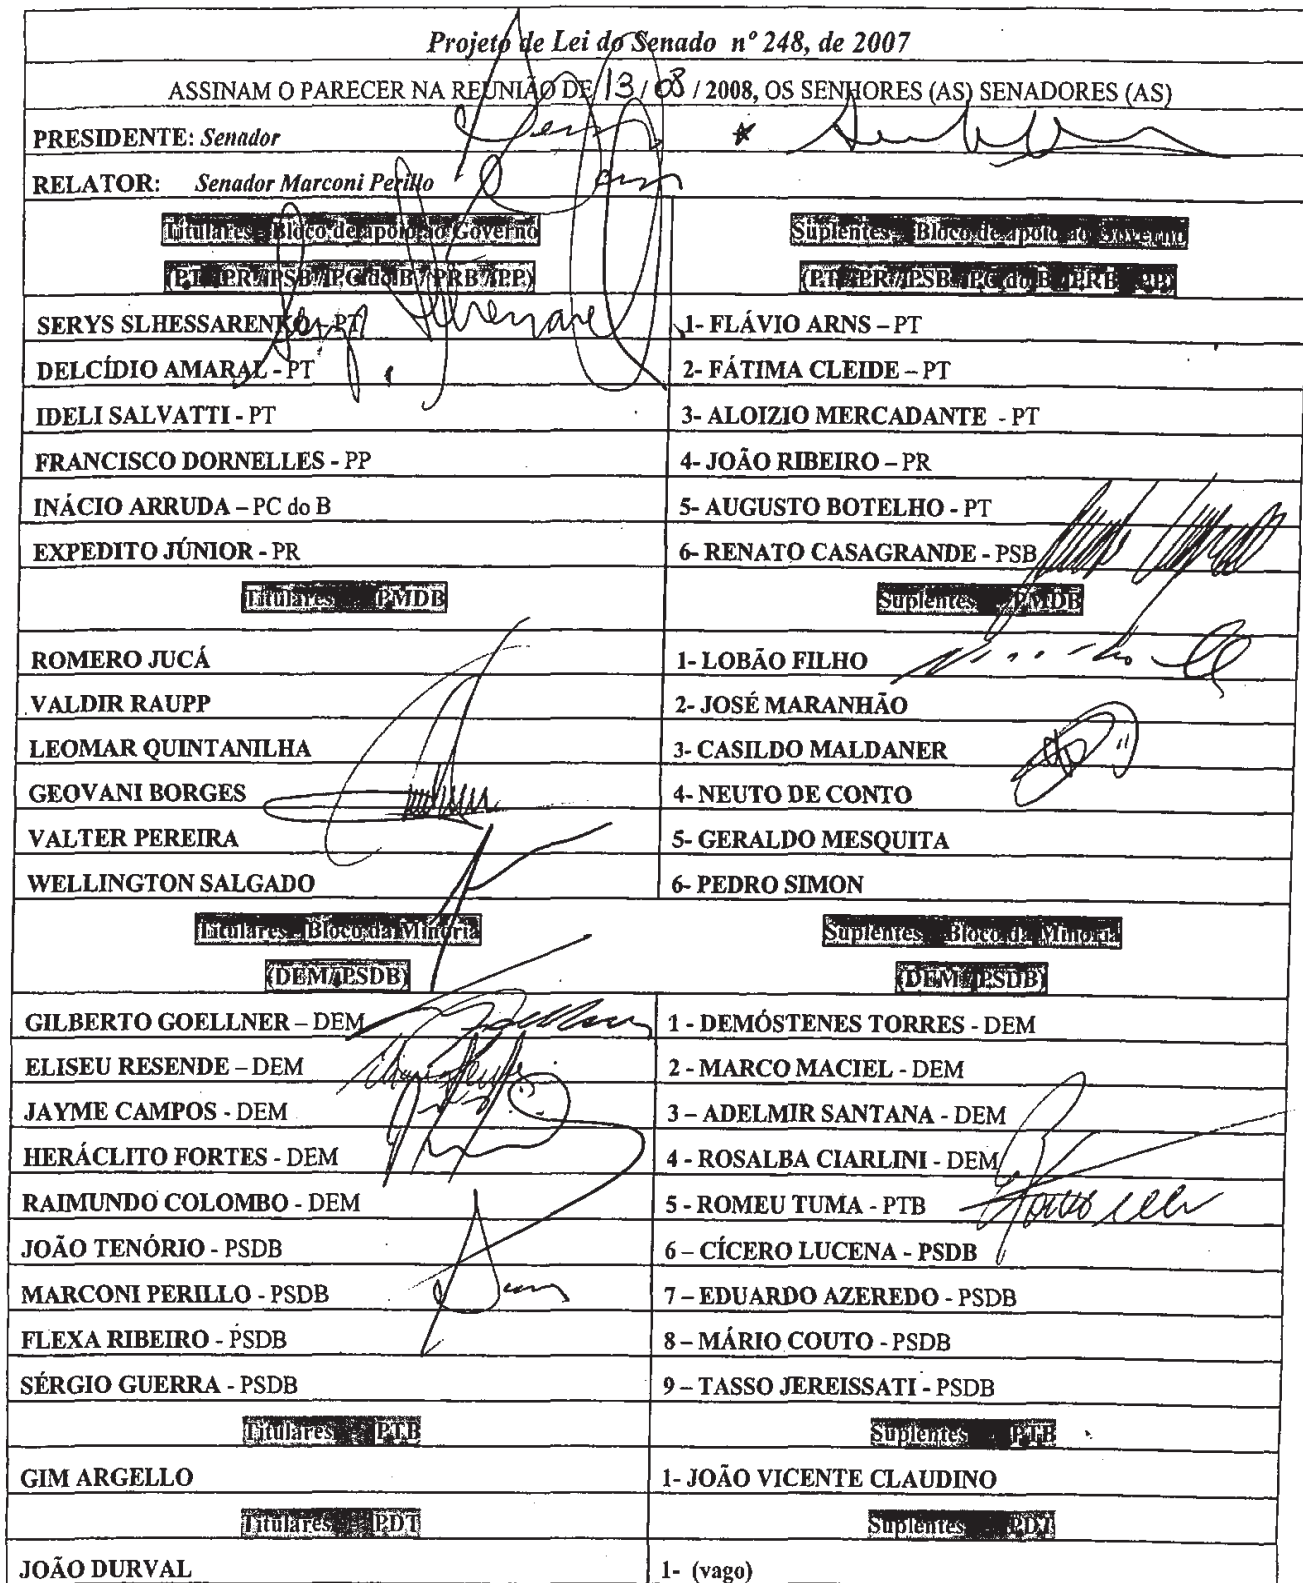 Projeto de Lei do Senado nº 248, de 2007
ASSINAM O PARECER NA REUNIÃO DE 13 / 08 / 2008, OS SENHORES (AS) SENADORES (AS)
PRESIDENTE: Senador
RELATOR: Senador Marconi Perillo
Titulares - Bloco de apoio ao Governo
(PT / PR / PSB / PC do B / PRB / PP)
Suplentes - Bloco de apoio ao Governo
(PT / PR / PSB / PC do B / PRB / PP)
SERYS SLHESSARENKO - PT
1- FLÁVIO ARNS – PT
DELCÍDIO AMARAL - PT
2- FÁTIMA CLEIDE – PT
IDELI SALVATTI - PT
3- ALOIZIO MERCADANTE - PT
FRANCISCO DORNELLES - PP
4- JOÃO RIBEIRO – PR
INÁCIO ARRUDA – PC do B
5- AUGUSTO BOTELHO - PT
EXPEDITO JÚNIOR - PR
6- RENATO CASAGRANDE - PSB
Titulares PMDB
Suplentes PMDB
ROMERO JUCÁ
1- LOBÃO FILHO
VALDIR RAUPP
2- JOSÉ MARANHÃO
LEOMAR QUINTANILHA
3- CASILDO MALDANER
GEOVANI BORGES
4- NEUTO DE CONTO
VALTER PEREIRA
5- GERALDO MESQUITA
WELLINGTON SALGADO
6- PEDRO SIMON
Titulares - Bloco da Minoria
(DEM/PSDB)
Suplentes - Bloco da Minoria
(DEM/PSDB)
GILBERTO GOELLNER – DEM
1 - DEMÓSTENES TORRES - DEM
ELISEU RESENDE – DEM
2 - MARCO MACIEL - DEM
JAYME CAMPOS - DEM
3 – ADELMIR SANTANA - DEM
HERÁCLITO FORTES - DEM
4 - ROSALBA CIARLINI - DEM
RAIMUNDO COLOMBO - DEM
5 - ROMEU TUMA - PTB
JOÃO TENÓRIO - PSDB
6 – CÍCERO LUCENA - PSDB
MARCONI PERILLO - PSDB
7 – EDUARDO AZEREDO - PSDB
FLEXA RIBEIRO - PSDB
8 – MÁRIO COUTO - PSDB
SÉRGIO GUERRA - PSDB
9 – TASSO JEREISSATI - PSDB
Titulares PTB
Suplentes PTB
GIM ARGELLO
1- JOÃO VICENTE CLAUDINO
Titulares PDT
Suplentes PDT
JOÃO DURVAL
1- (vago)